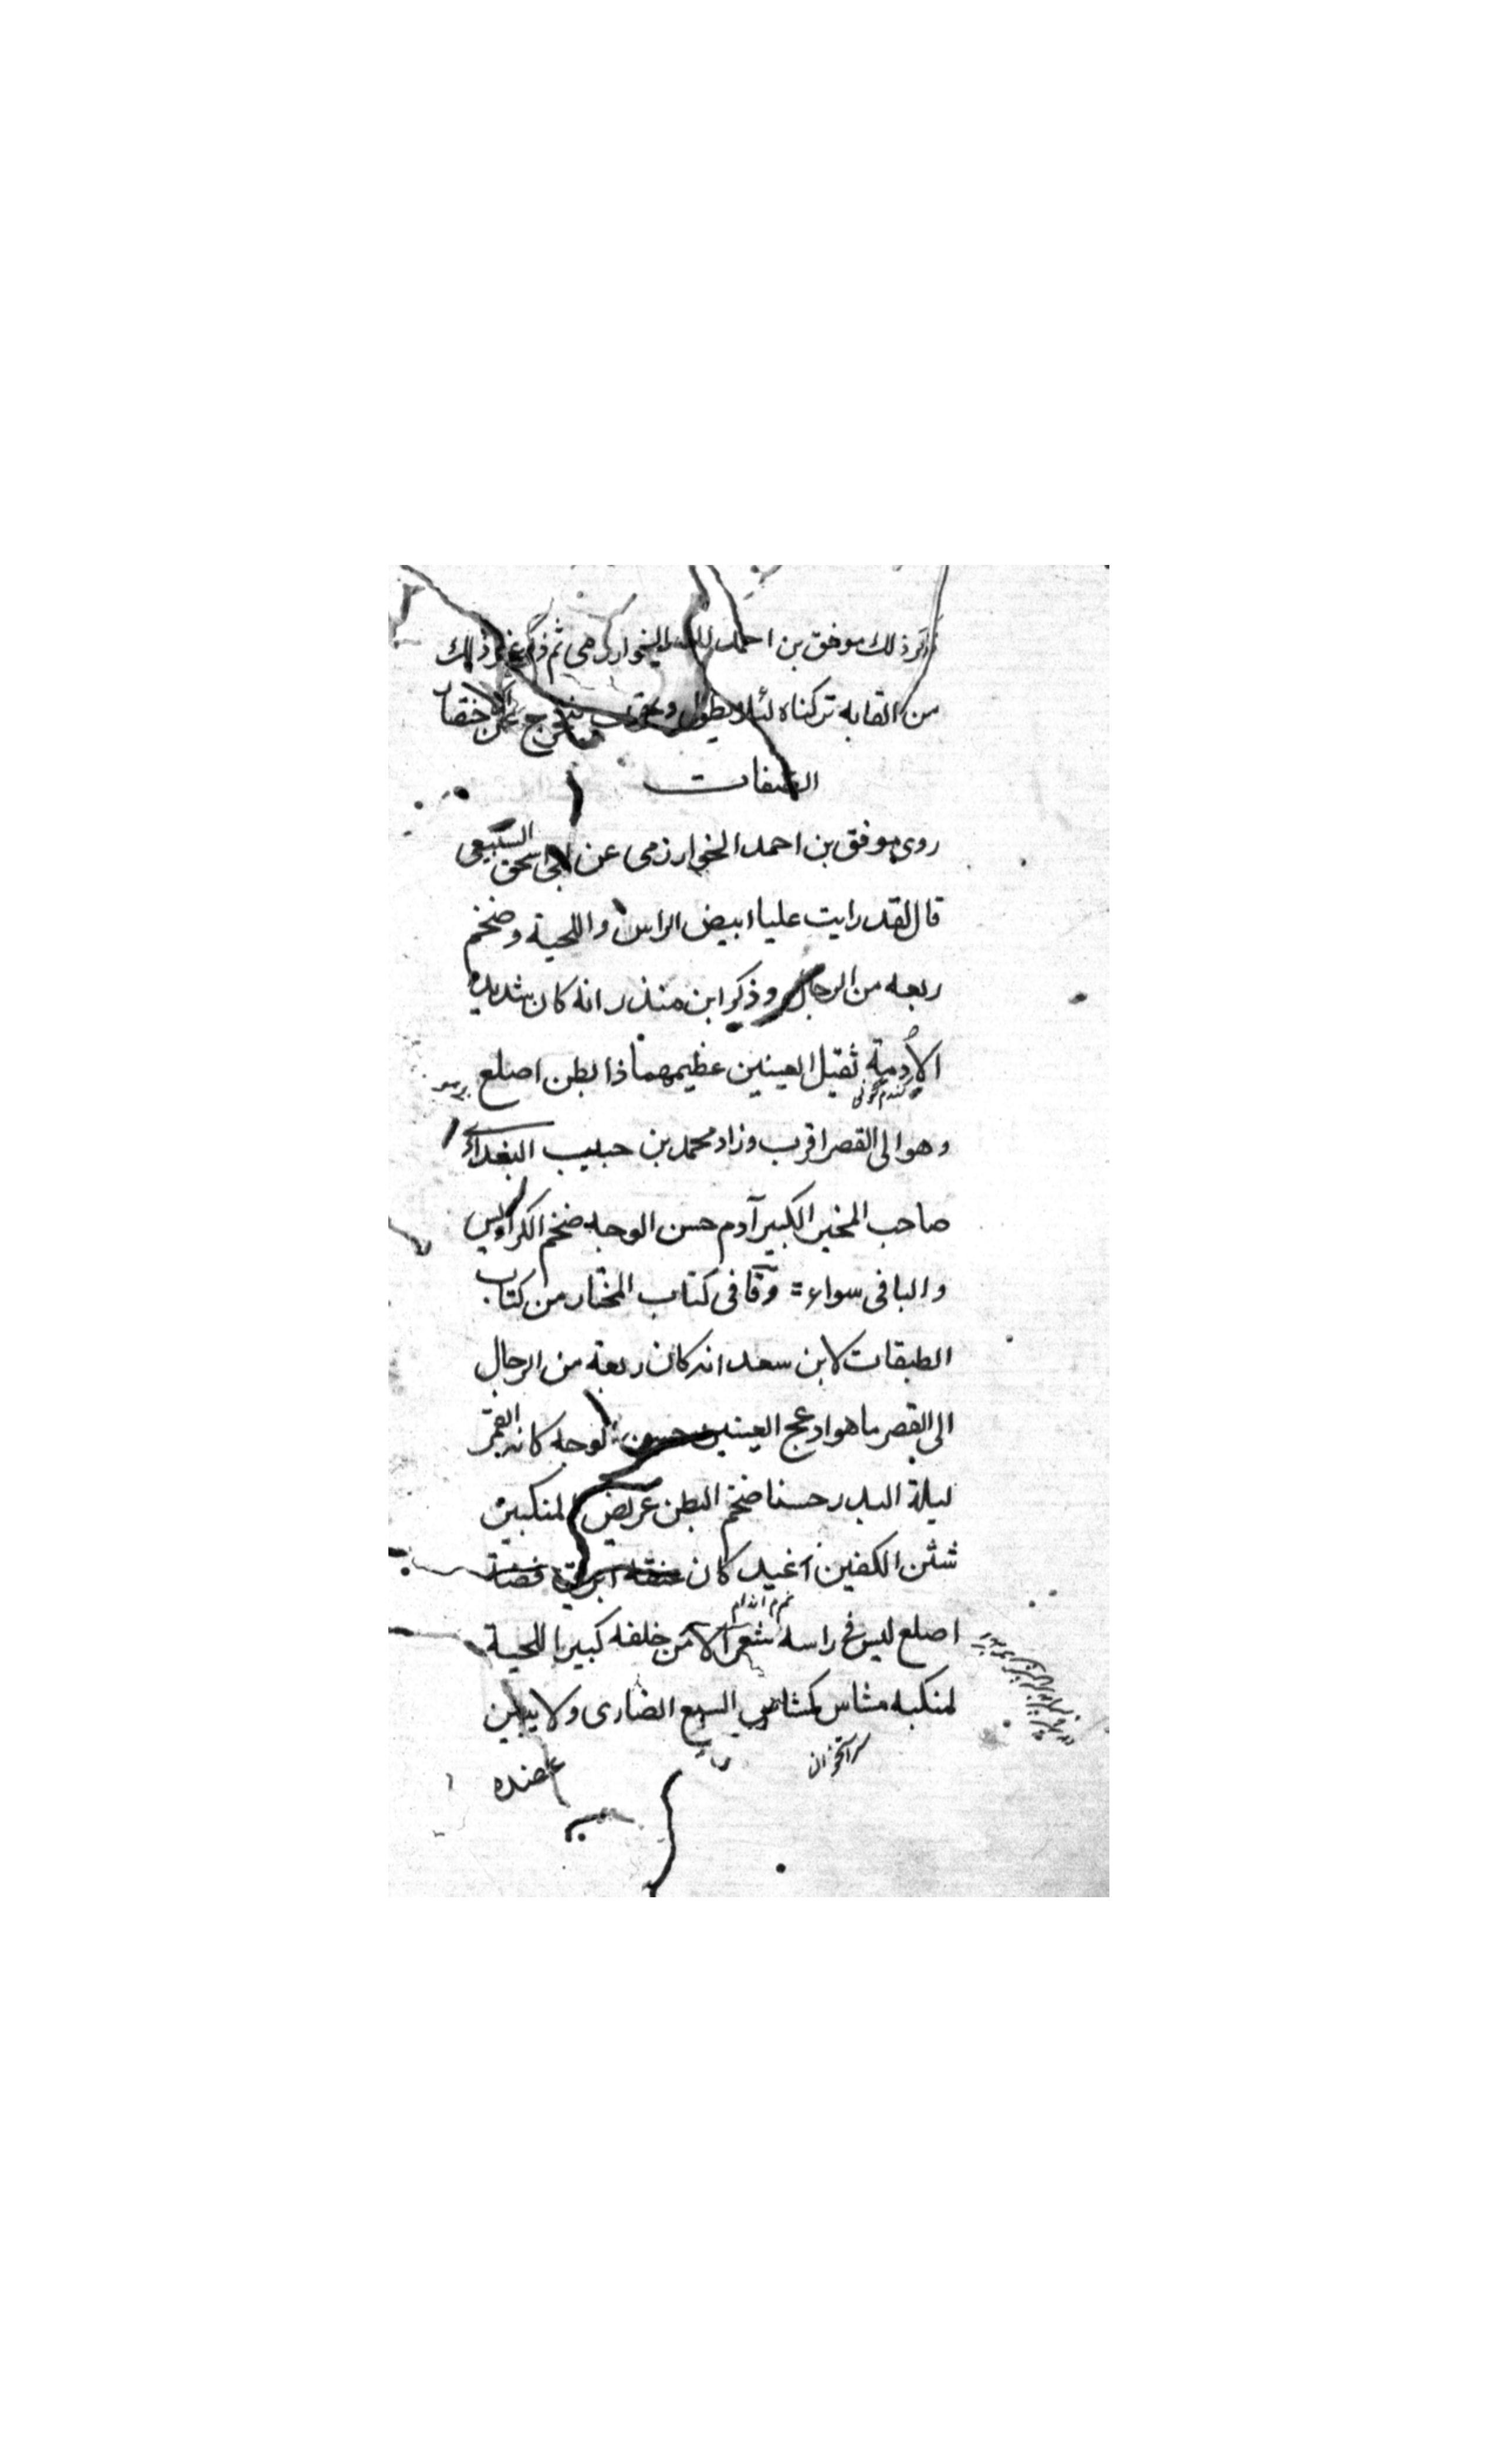 ذكر ذلك موفق بن احمد الخوارزمى ثم ذكر غير ذلك
من القابه تركناه لئلا يطول و يخرج عن الاختصار
الصفات
روى موفق بن احمد الخوارزمى عن ابى اسحق السبيعى
قال لقد رايت عليا ابيض الراس واللحية وضخم
ربعه من الرجال وذكر ابن منذر انه كان شديد
الادمة ثقيل العينين عظيمهما ذا بطن اصلع
كندم كونى
وهو الى القصر اقرب وزاد محمد بن حبيب البغدادى
صاحب المخبر الكبير آدم حسن الوجه ضخم الكراديس
والباقى سواء وقا فى كتاب المختار من كتاب
الطبقات لابن سعد انه كان ربعة من الرجال
الى القصر ما هو ادعج العينين حسن الوجه كانه القمر
ليلة البدر حسنا ضخم البطن عريض المنكبين
شثن الكفين اغيد كان عنقه ابريق فضة
نرم اندام
اصلع ليس فى راسه شعر الا من خلفه كبير اللحية
لمنكبه مشاس كمشاس السبع الضارى ولا يبين
سر استخوان
عضده